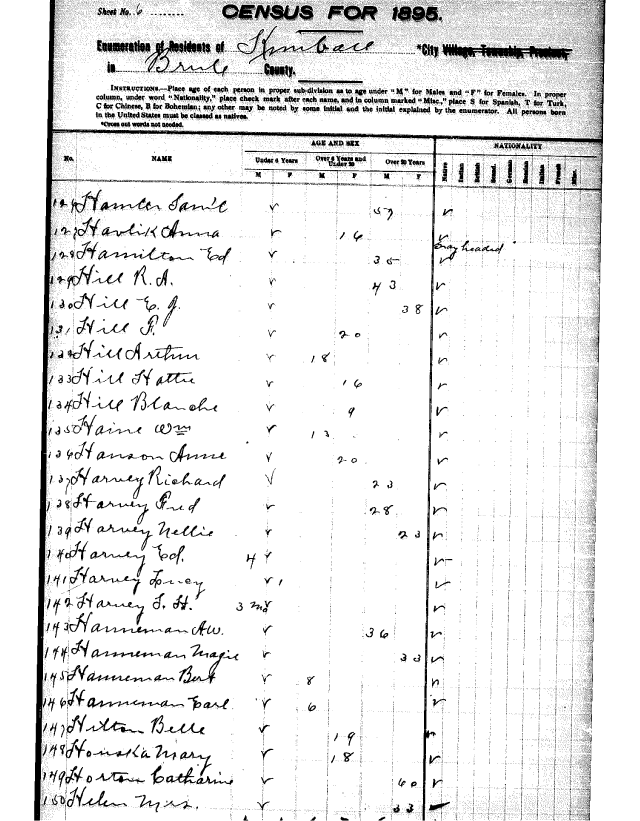 Sheet No. 6
CENSUS FOR 1895.
Enumeration of Residents of Kimball *City Village, Township, Precinct,
in Brule County.
INSTRUCTIONS.—Place age of each person in proper sub-division as to age under "M" for Males and "F" for Females. In proper
column, under word "Nationality," place check mark after each name, and in column marked "Misc.," place S for Spanish, T for Turk,
C for Chinese, B for Bohemian; any other may be noted by some initial and the initial explained by the enumerator. All persons born
in the United States must be classed as natives.
*Cross out words not needed.
AGE AND SEX NATIONALITY
No. NAME Under 6 Years Over 6 Years and Under 20 Over 20 Years Native
M F M F M F
126 Hamler Sam'l ✓ 57 ✓
127 Havlik Anna ✓ 16 ✓
128 Hamilton Ed ✓ 35 Gray headed ✓
129 Hill R. A. ✓ 43 ✓
130 Hill E. J. ✓ 38 ✓
131 Hill F. ✓ 20 ✓
132 Hill Arthur ✓ 18 ✓
133 Hill Hattie ✓ 16 ✓
134 Hill Blanche ✓ 9 ✓
135 Haine Wm ✓ 13 ✓
136 Hanson Anne ✓ 20 ✓
137 Harvey Richard ✓ 23 ✓
138 Harvey Fred ✓ 28 ✓
139 Harvey Nellie ✓ 23 ✓
140 Harvey Ed. 4 ✓ ✓
141 Harvey ✓ 1 ✓
142 Harvey 3 mo ✓ ✓
143 Hanneman A.W. ✓ 36 ✓
144 Hanneman Magie ✓ 33 ✓
145 Hanneman Bert ✓ 8 ✓
146 Hanneman Earl ✓ 6 ✓
147 Hilton Belle ✓ 19 ✓
148 Honska Mary ✓ 18 ✓
149 Horton Catharine ✓ 60 ✓
150 Helen Mrs. ✓ 33 ✓